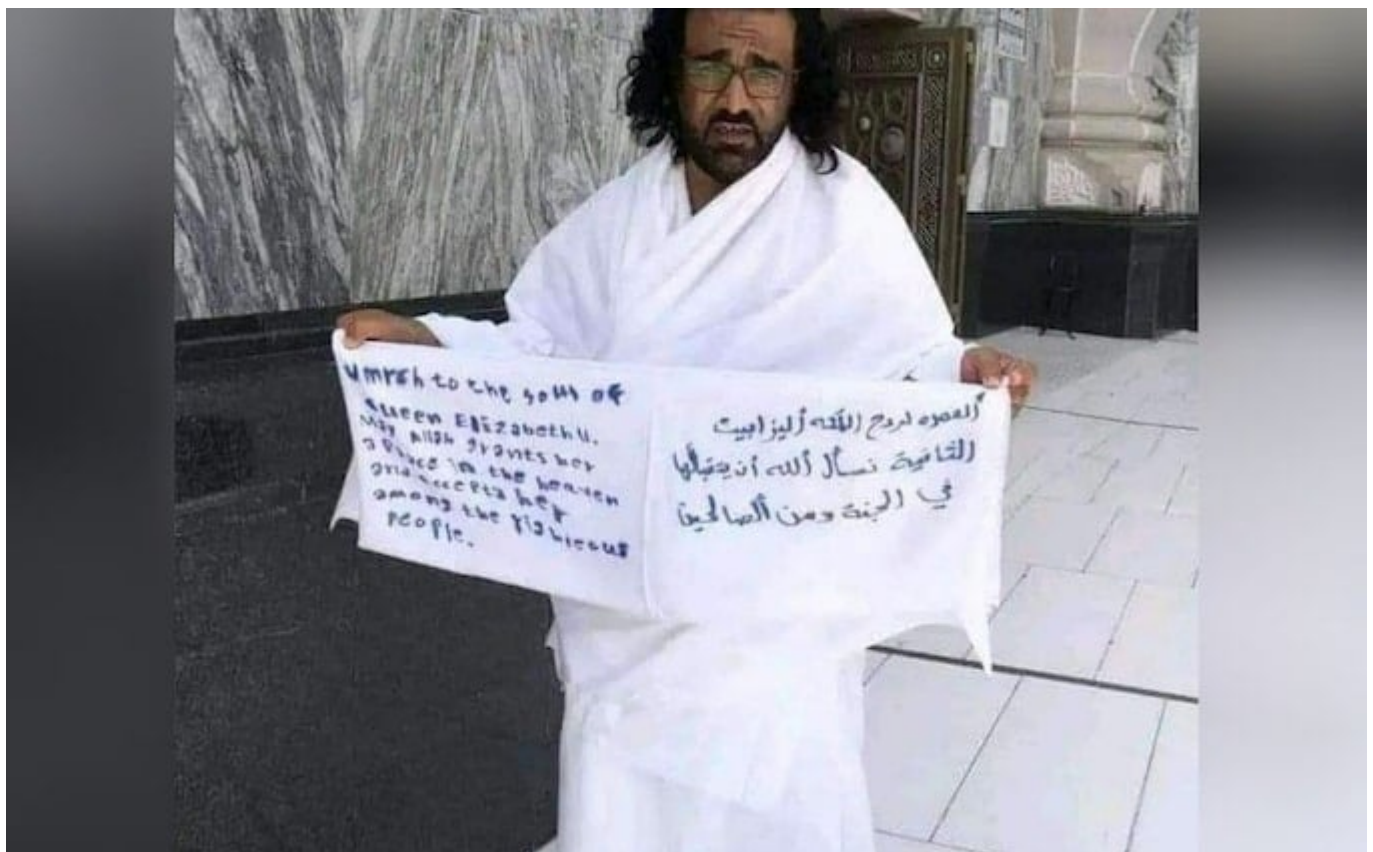 Umrah to the soul of
Queen Elizabeth II.
May Allah grants her
a Place in the heaven
and accepts her
among the righteous
People.
ألعمره لروح الملكه أليزابيث
الثانية نسأل ألله أن يتقبلها
في الجنة ومن ألصالحين